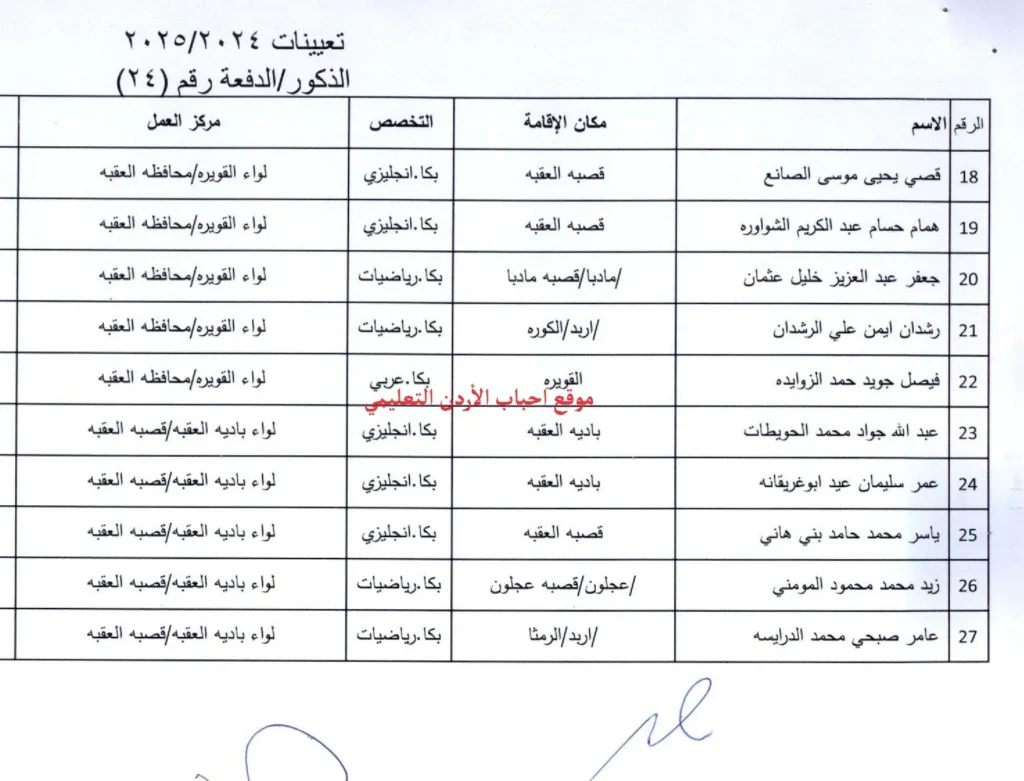 تعيينات ٢٠٢٥/٢٠٢٤
الذكور/الدفعة رقم (٢٤)
الرقم الاسم مكان الإقامة التخصص مركز العمل
18 قصي يحيى موسى الصانع قصبه العقبه بكا.انجليزي لواء القويره/محافظه العقبه
19 همام حسام عبد الكريم الشواوره قصبه العقبه بكا.انجليزي لواء القويره/محافظه العقبه
20 جعفر عبد العزيز خليل عثمان /مادبا/قصبه مادبا بكا.رياضيات لواء القويره/محافظه العقبه
21 رشدان ايمن علي الرشدان /اربد/الكوره بكا.رياضيات لواء القويره/محافظه العقبه
22 فيصل جويد حمد الزوايده القويره بكا.عربي لواء القويره/محافظه العقبه
موقع احباب الأردن التعليمي
23 عبد الله جواد محمد الحويطات باديه العقبه بكا.انجليزي لواء باديه العقبه/قصبه العقبه
24 عمر سليمان عيد ابوغريقانه باديه العقبه بكا.انجليزي لواء باديه العقبه/قصبه العقبه
25 ياسر محمد حامد بني هاني قصبه العقبه بكا.انجليزي لواء باديه العقبه/قصبه العقبه
26 زيد محمد محمود المومني /عجلون/قصبه عجلون بكا.رياضيات لواء باديه العقبه/قصبه العقبه
27 عامر صبحي محمد الدرايسه /اربد/الرمثا بكا.رياضيات لواء باديه العقبه/قصبه العقبه